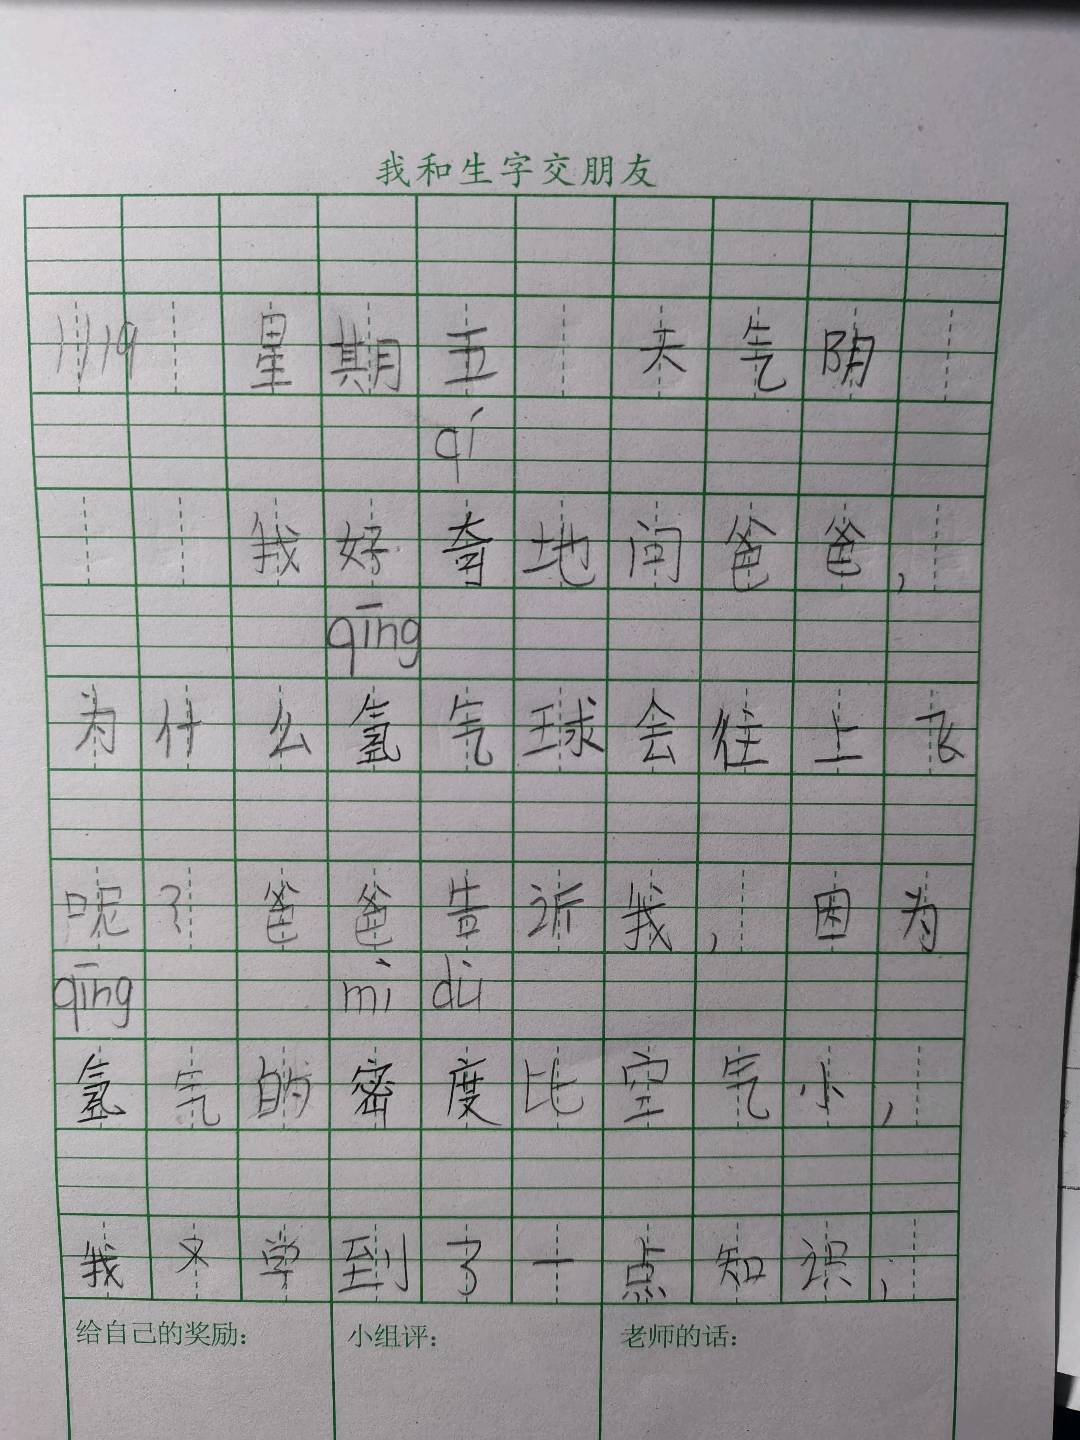 我和生字交朋友
1119 星期五 天气阴
qí
我好奇地问爸爸，
qīng
为什么氢气球会往上飞
呢？爸爸告诉我，因为
qīng mì dù
氢气的密度比空气小，
我又学到了一点知识，
给自己的奖励： 小组评： 老师的话：